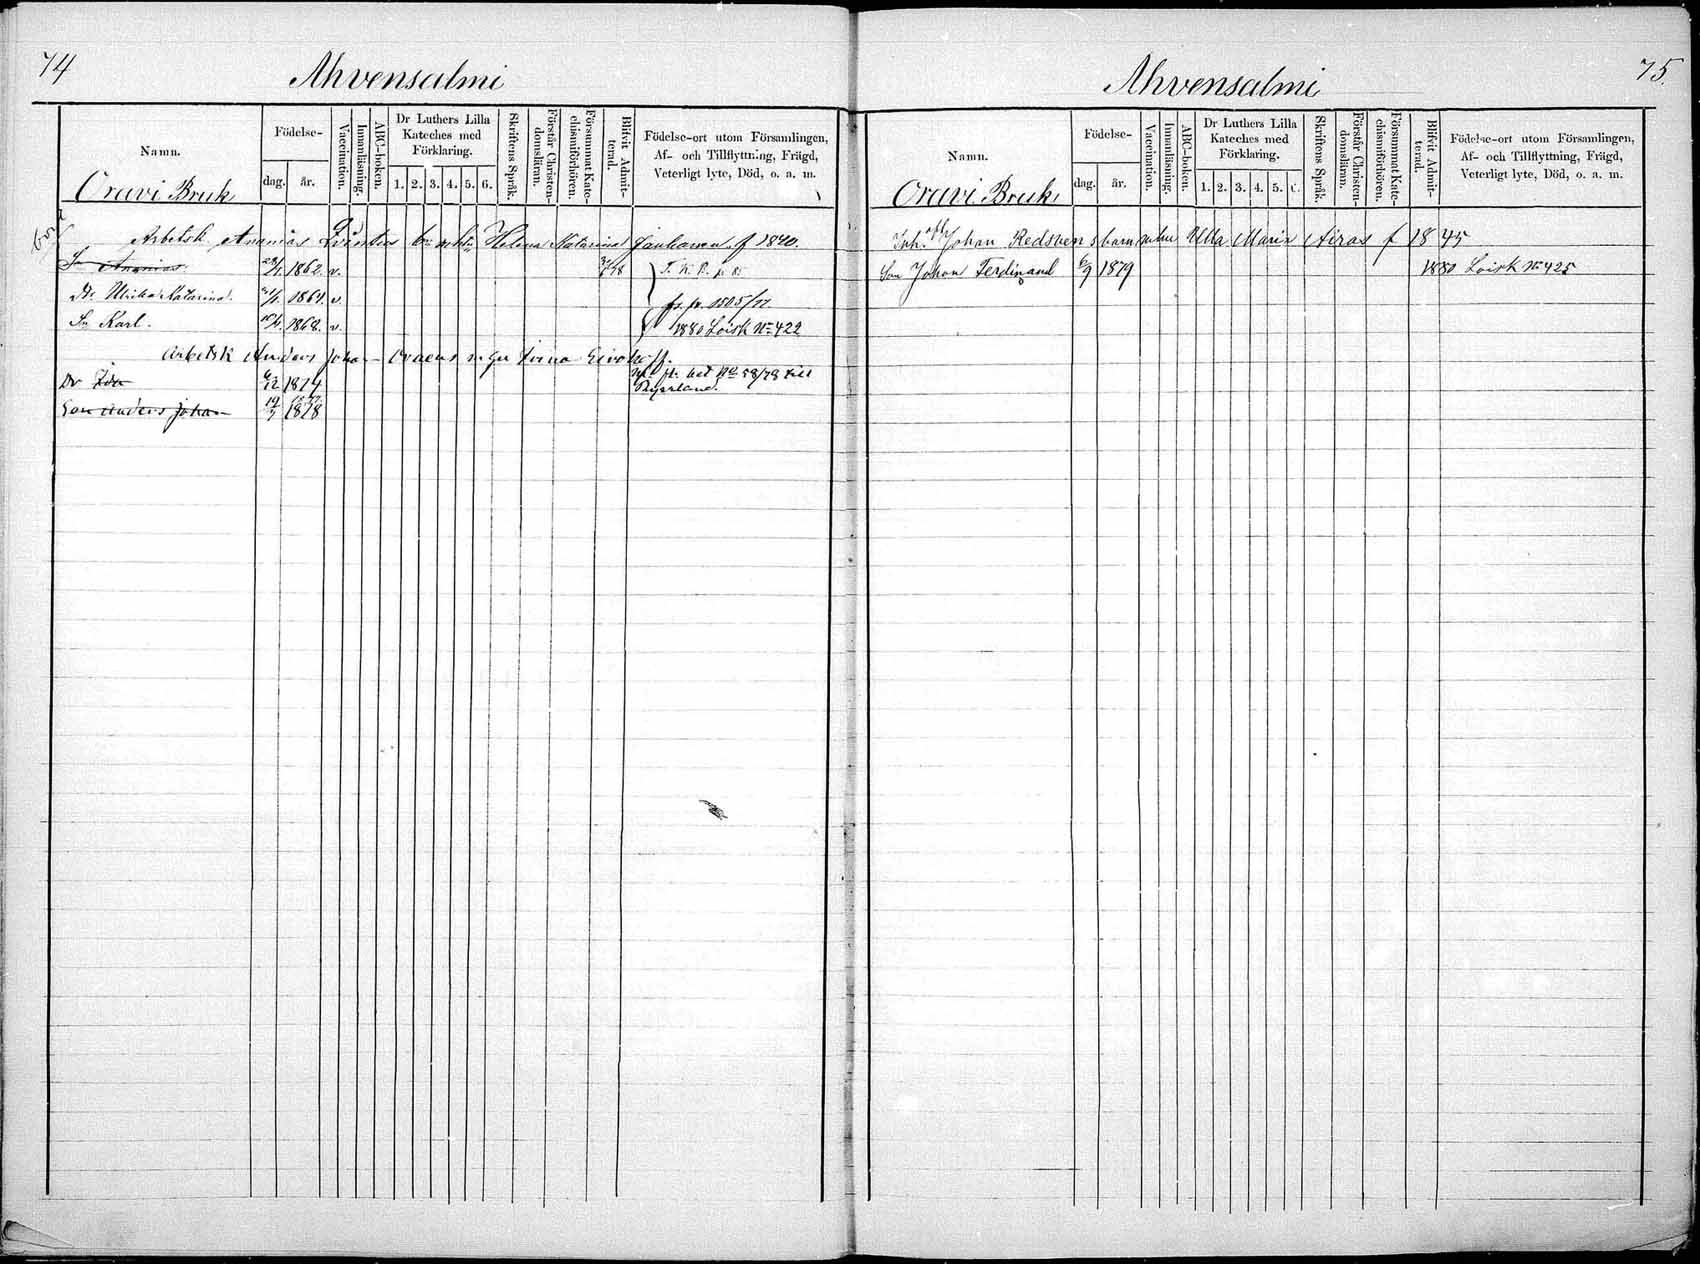 74
Ahvensalmi
Namn.
Födelse-
dag. år.
Vaccination.
Innanläsning.
ABC-boken.
Dr Luthers Lilla
Kateches med
Förklaring.
1. 2. 3. 4. 5. 6.
Skriftens Språk.
Förstår Christen-
domslären.
Försummat Kate-
chismiförhören.
Blifvit Admit-
terad.
Födelse-ort utom Församlingen,
Af- och Tillflyttning, Frägd,
Veterligt lyte, Död, o. a. m.
Oravi Bruk
Arbetsk Ananias Helena Katarina f 1840.
Sn Ananias 1862. v.
Dr Ulrika Katarina. 1864. v. fr. p. 1505/77
Sn Karl. 1868. v. 1880 Loisk No 422
Arbetsk Anders Johan
Dr Ida 6/12 1874 58/78 till
Ryssland.
Son Anders Johan 19/7 1878
75.
Ahvensalmi
Namn.
Födelse-
dag. år.
Vaccination.
Innanläsning.
ABC-boken.
Dr Luthers Lilla
Kateches med
Förklaring.
1. 2. 3. 4. 5.
Skriftens Språk.
Förstår Christen-
domslären.
Försummat Kate-
chismiförhören.
Blifvit Admit-
terad.
Födelse-ort utom Församlingen,
Af- och Tillflyttning, Frägd,
Veterligt lyte, Död, o. a. m.
Oravi Bruk
Inh. Johan Redsvens barn Ulla Maria Airas f 1845
Son Johan Ferdinand 6/9 1879 1880 Loisk No 425